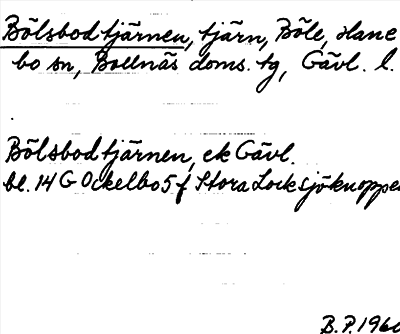 Bölsbodtjärnen, tjärn, Böle, Hane
bo sn, Bollnäs doms. tg, Gävl. l.
Bölsbodtjärnen, ek Gävl.
bl. 14 G Ockelbo 5 f Stora Locksjöknoppen
B.P. 1960